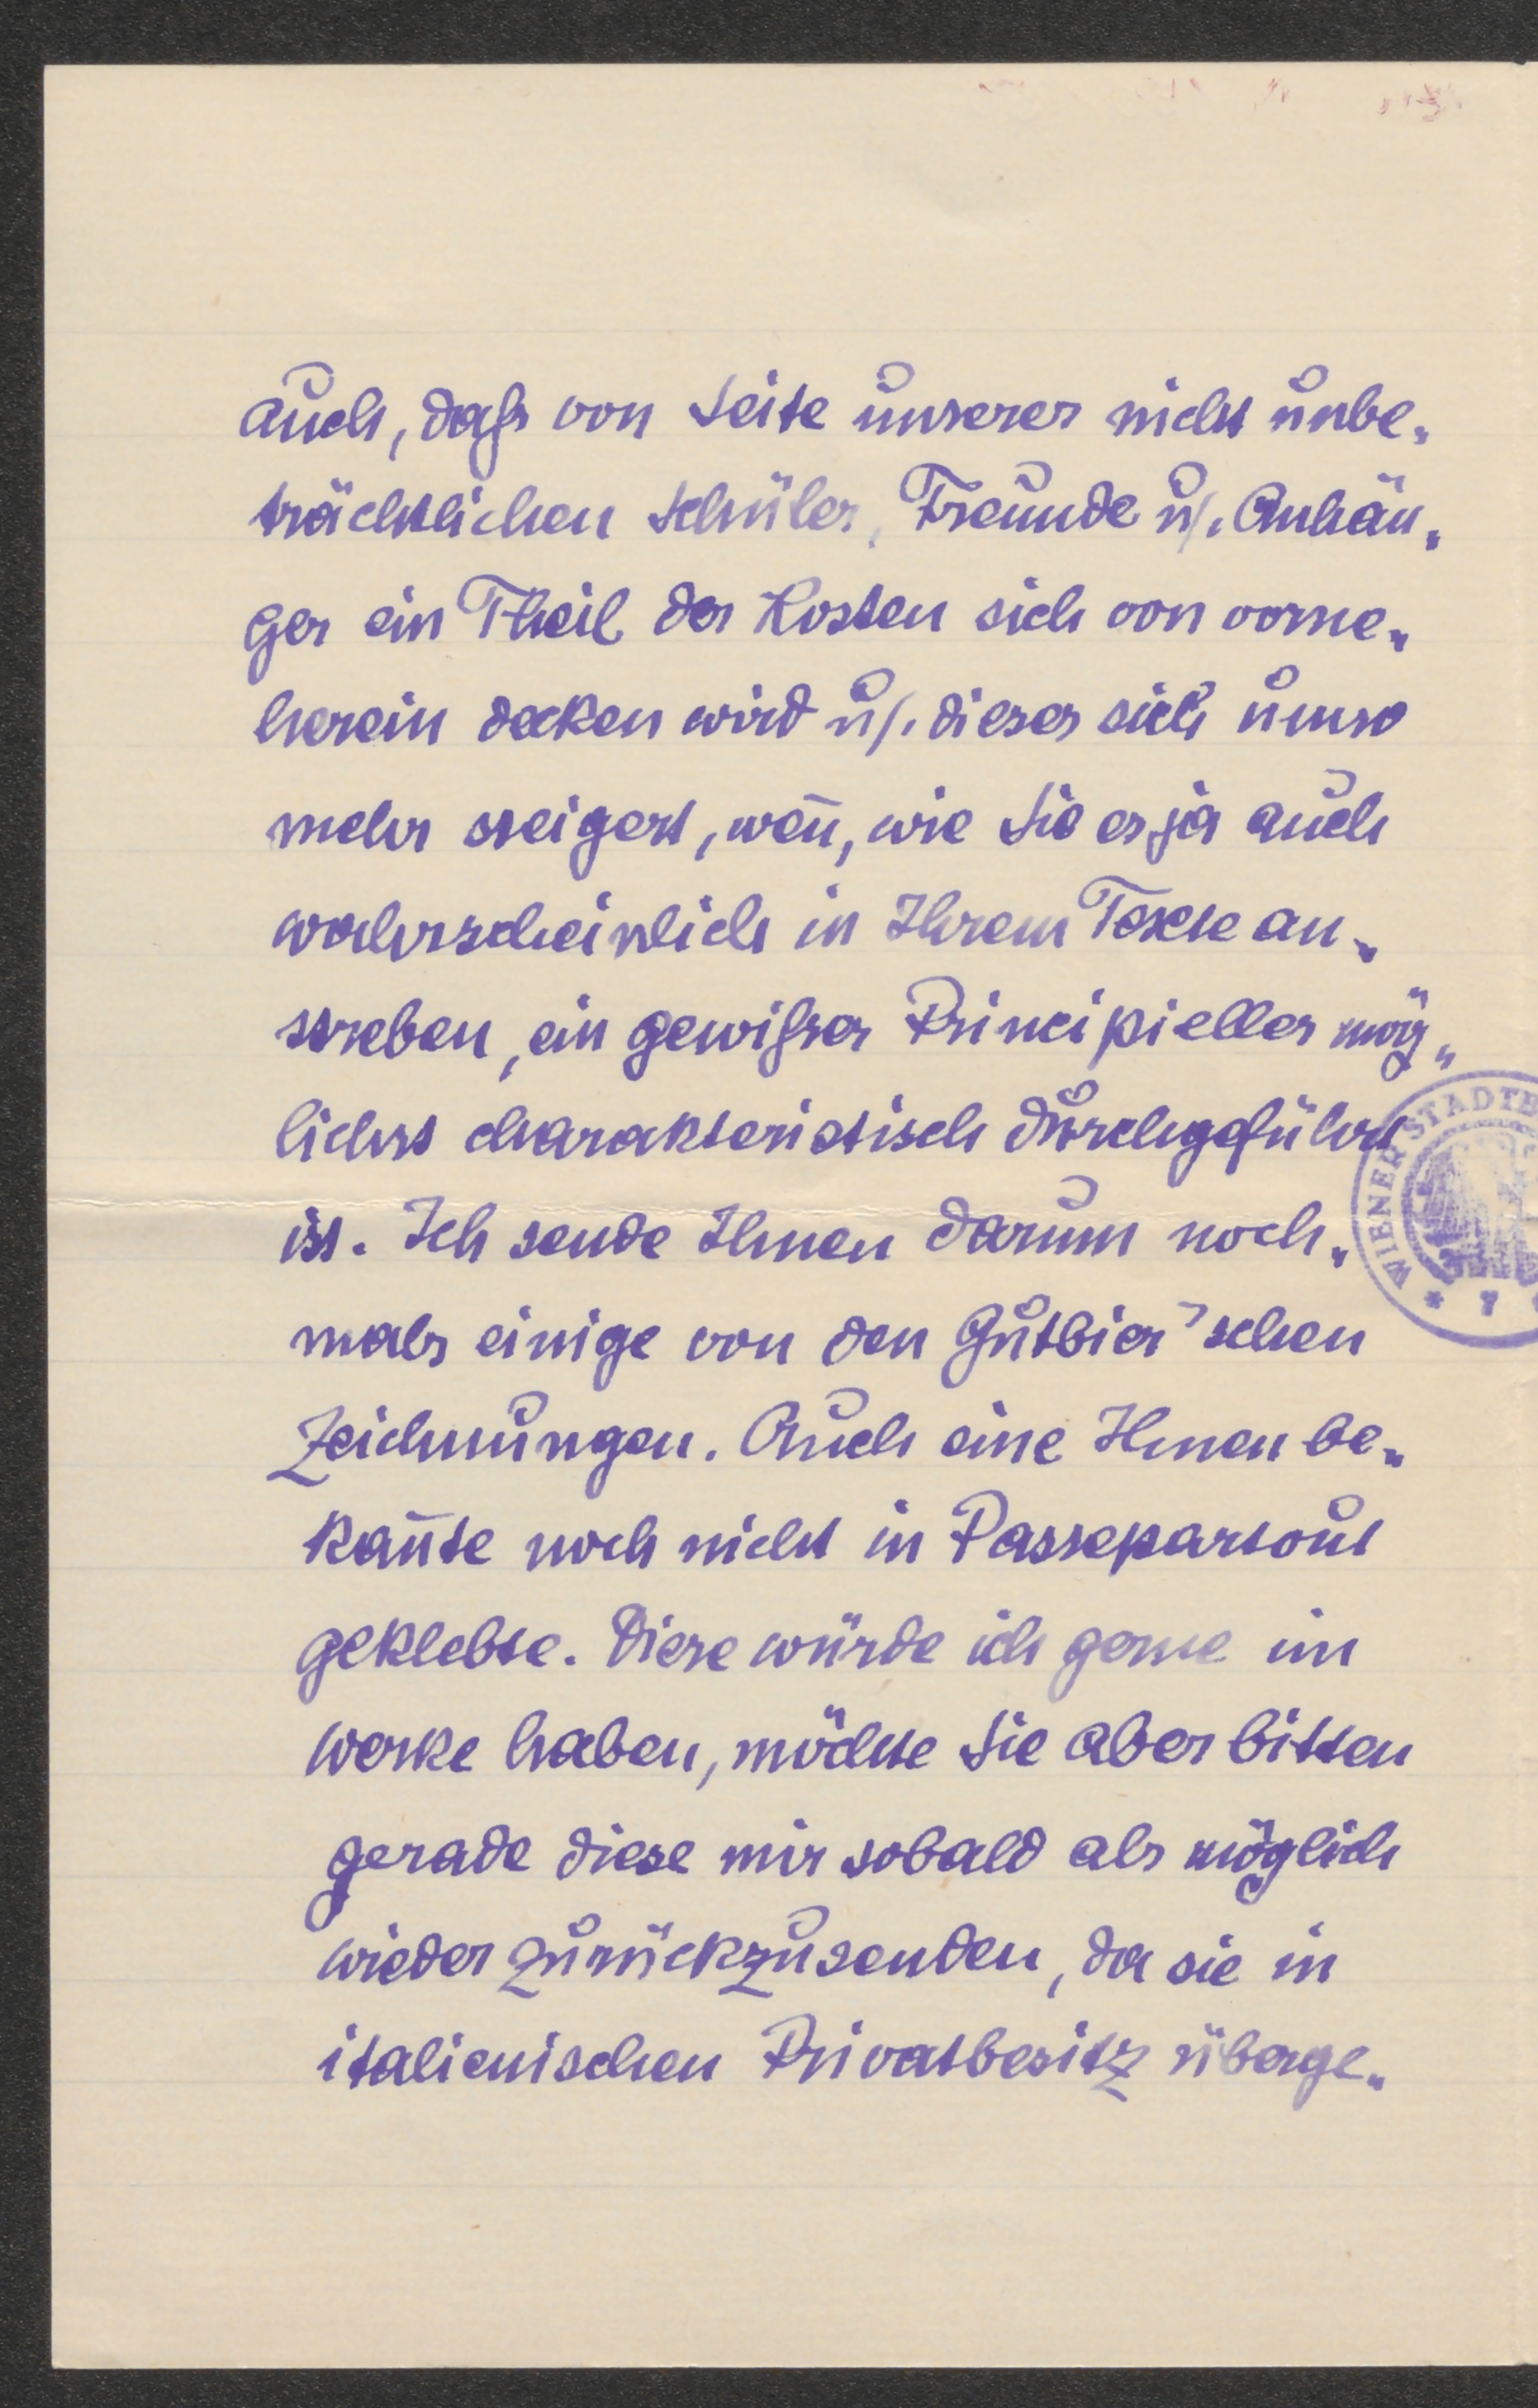 auch, daß von Seite unserer nicht unbe„
trächtlichen Schüler, Freunde u/. Anhän„
ger ein Theil der Kosten sich von vorne„
herein decken wird u/. dieser sich umso
mehr steigert, wen̄, wie Sie es ja auch
wahrscheinlich in Ihrem Texte an„
streben, ein gewißer Principieller mög„
lichst charakteristisch durchgeführt
ist. Ich sende Ihnen darum noch„
mals einige von den Gutbier'schen
Zeichnungen. Auch eine Ihnen be„
kan̄te noch nicht in Passepartout
geklebte. Diese würde ich gerne im
Werke haben, möchte Sie aber bitten
gerade diese mir sobald als möglich
wieder zurückzusenden, da sie in
italienischen Privatbesitz überge„
WIENER STADTB
* 7